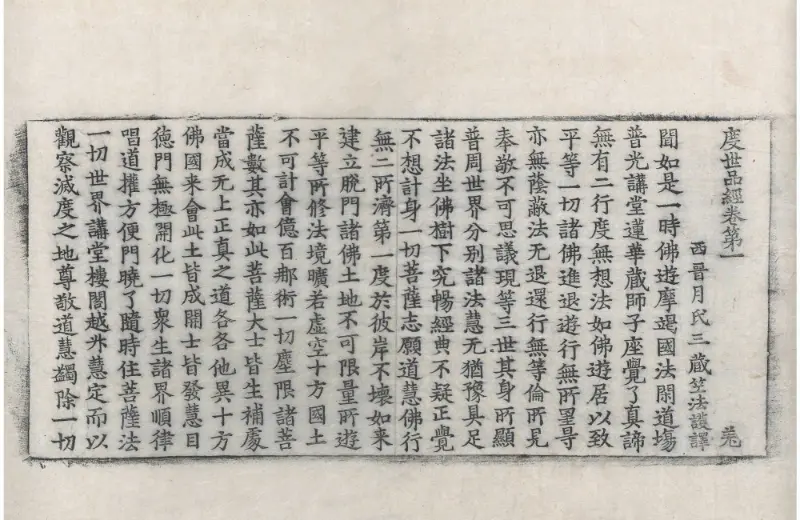 度世品經卷第一 羌
西晉月氏三藏竺法護譯
聞如是一時佛遊摩竭國法閑道場
普光講堂蓮華藏師子座覺了真諦
無有二行度無想法如佛遊居以致
平等一切諸佛進退遊行無所罣㝵
亦無蔭蔽法无退還行無等倫所見
奉敬不可思議現等三世其身所顯
普周世界分別諸法慧无猶豫具足
諸法坐佛樹下究暢經典不疑正覺
不想計身一切菩薩志願道慧佛行
無二所濟第一度於彼岸不壞如来
建立脫門諸佛土地不可限量所遊
平等所修法境曠若虛空十方國土
不可計會億百那術一切塵限諸菩
薩數其亦如此菩薩大士皆生補處
當成无上正真之道各各他異十方
佛國来會此土皆成開士皆發慧目
德門無極開化一切衆生諸界順律
唱道權方便門曉了隨時住菩薩法
一切世界講堂樓閣越升慧定而以
觀察滅度之地尊敬道慧蠲除一切